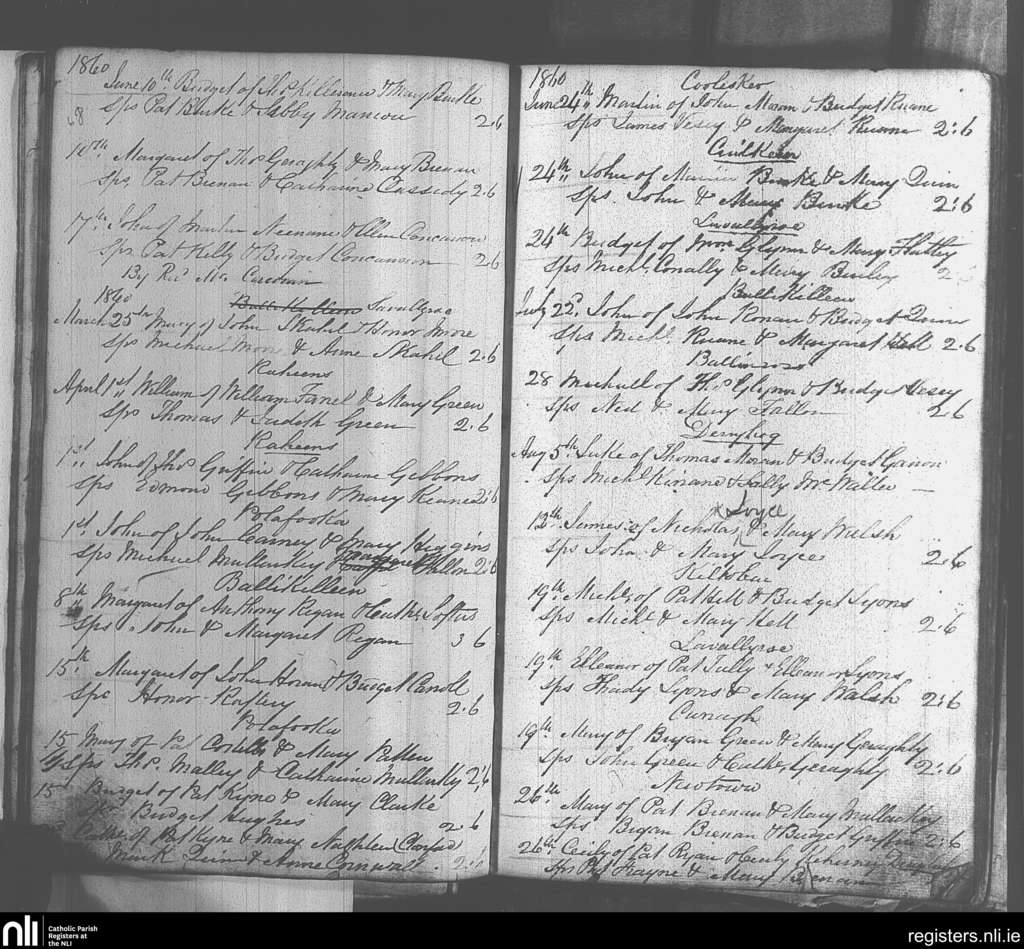 1860
June 10th Budget of Ths Killerane & Mary Burke
Sps Pat Burke & Sabby Manion
2.6
10th Margaret of Ths Geraghty & Mary Brenan
Sps Pat Brenan & Catharine Cassidy 2.6
17th John of Martin Neenane & Ellen Concanon
Sps Pat Kelly & Budget Concannon 2.6
By Revd Mr
1860
Ballikilleen Lavallyroe
March 25th Mary of John Skahel & Honor More
Sps Michael More & Anne Skahil 2.6
Raheens
April 1st William of William Farrel & Mary Green
Sps Thomas & Judeth Green 2.6
Raheens
1st John of Ths Griffin & Catharine Gibbons
Sps Edmond Gibbons & Mary Keane 2.6
Polafooka
1st John of John Carney & Mary Higgins
Sps Michael Mullarkey 2.6
Ballikilleen
8th Margaret of Anthony Regan & Cathe Loftus
Sps John & Margaret Regan 3 6
15th Margaret of John Horan & Budget Carroll
Sps Honor Raftery 2.6
Polafooka
15 Mary of Pat Costello & Mary Patten
Sps Ths Malley & Catharine Mullarky 2.6
15 Budget of Pat Kyne & Mary Clarke
Budget Hughes 2.6
Cathe of Pat Kyne & Mary
Mark Quinn & Anne Cornwall 2.6
1860 Coolesker
June 24th Martin of John Moran & Budget Ruane
Sps James Vesey & Margaret Ruane 2:6
Cuilkeen
24th John of Martin Burke & Mary Quin
Sps John & Mary Burke 2:6
Lavallyroe
24th Budget of Wm Glynn & Mary Flatley
Sps Michl Conally & Mary 2
Ballikilleen
July 22d John of John Ronan & Budget Quin
Sps Michl Ruane & Margaret Hell 2.6
Ballinross
28 Michael of Ths Glynn & Budget Vesey
Sps Ned & Mary Fallon 2.6
Derrylug
Aug 5th Luke of Thomas Moran & Budget Ganon
Sps Michl Kirrane & Sally McWalter —
x Joyce
12th James of Nicholas & Mary Walsh
Sps John & Mary Joyce 2.6
Kiltobar
19th Michl of Pat Hell & Budget Lyons
Sps Michl & Mary Hell 2.6
Lavallyroe
19th Elleanor of Pat Tully & Elleanor Lyons
Sps Thady Lyons & Mary Walsh 2:6
Curragh
19th Mary of Bryan Green & Mary Geraghty
Sps John Green & Cathe Geraghty 2:6
Newtown
26th Mary of Pat Brenan & Mary Mullarkey
Sps Bryan Brenan & Budget Griffin 2:6
26th Cicily of Pat Ryan & Cecily
Sps Pat Frayne & Mary Brenan
nli
Catholic Parish
Registers at
the NLI
registers.nli.ie